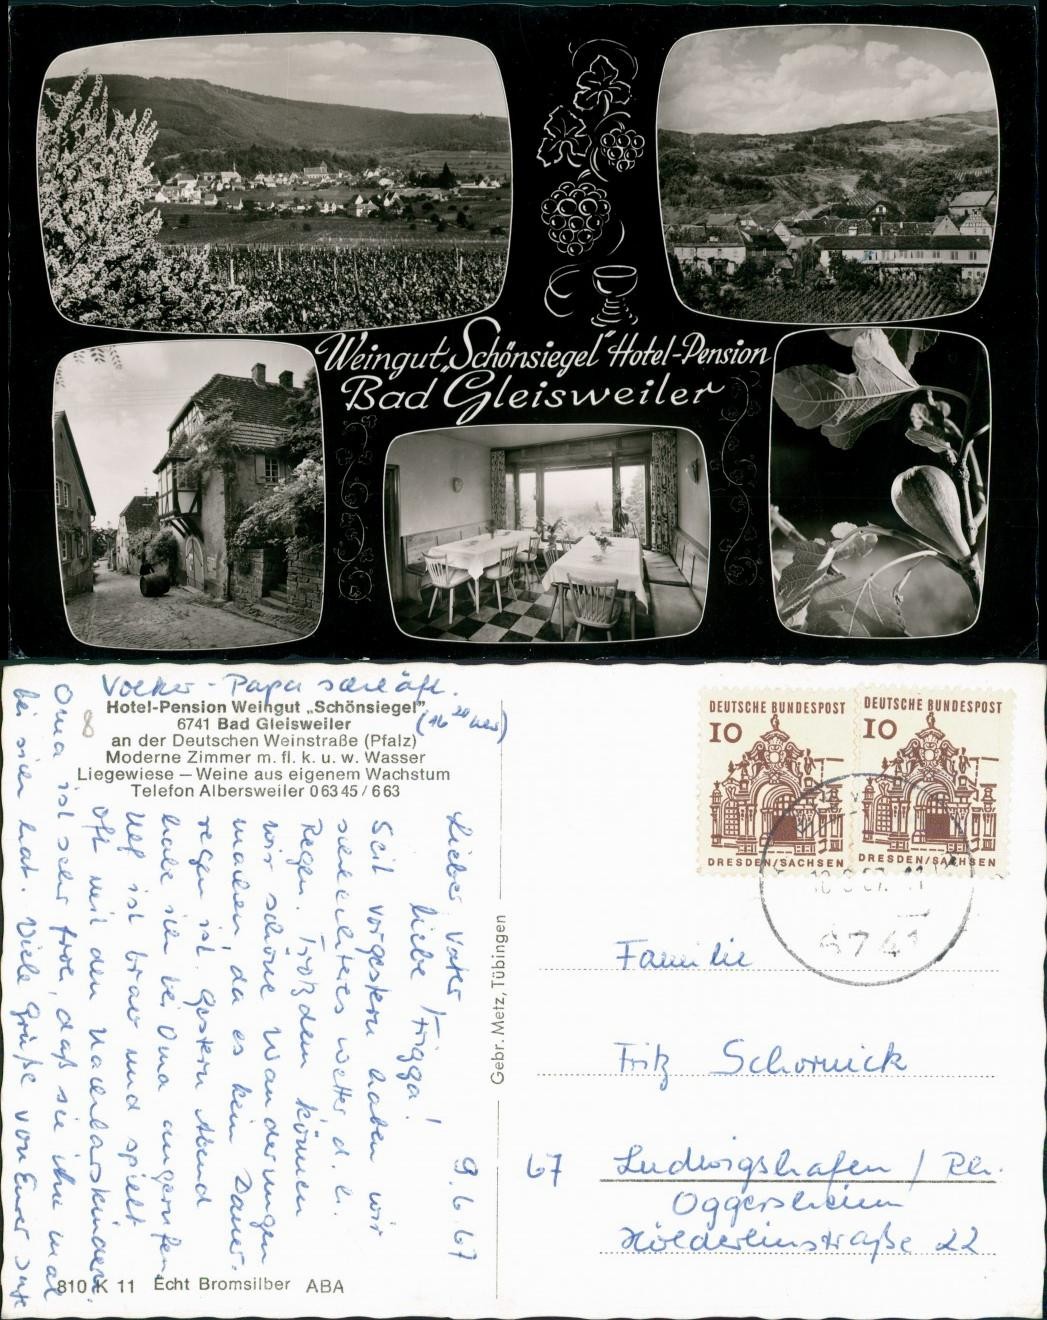 Weingut „Schönsiegel“ Hotel-Pension
Bad Gleisweiler
Volker - Papa schläft.
(16 20 Uhr)
Hotel-Pension Weingut „Schönsiegel”
6741 Bad Gleisweiler
an der Deutschen Weinstraße (Pfalz)
Moderne Zimmer m. fl. k. u. w. Wasser
Liegewiese — Weine aus eigenem Wachstum
Telefon Albersweiler 0 63 45 / 6 63
8
9.6.67
Lieber Vater,
liebe Frigga!
Seit vorgestern haben wir
schlechtes Wetter, d. h.
Regen. Trotzdem können
wir schöne Wanderungen
machen, da es kein Dauer-
regen ist. Gestern Abend
habe ich bei Oma angerufen.
Ulf ist brav und spielt
oft mit den Nachbarskindern.
Oma ist sehr froh, daß sie ihn mal
bei sich hat. Viele Grüße von Eurer
810 K 11 Echt Bromsilber ABA
Gebr. Metz, Tübingen
DEUTSCHE BUNDESPOST
10
DRESDEN/SACHSEN
DEUTSCHE BUNDESPOST
10
DRESDEN/SACHSEN
6741
Familie
Fritz Schornick
67 Ludwigshafen / Rh.
Oggersheim
Hölderlinstraße 22